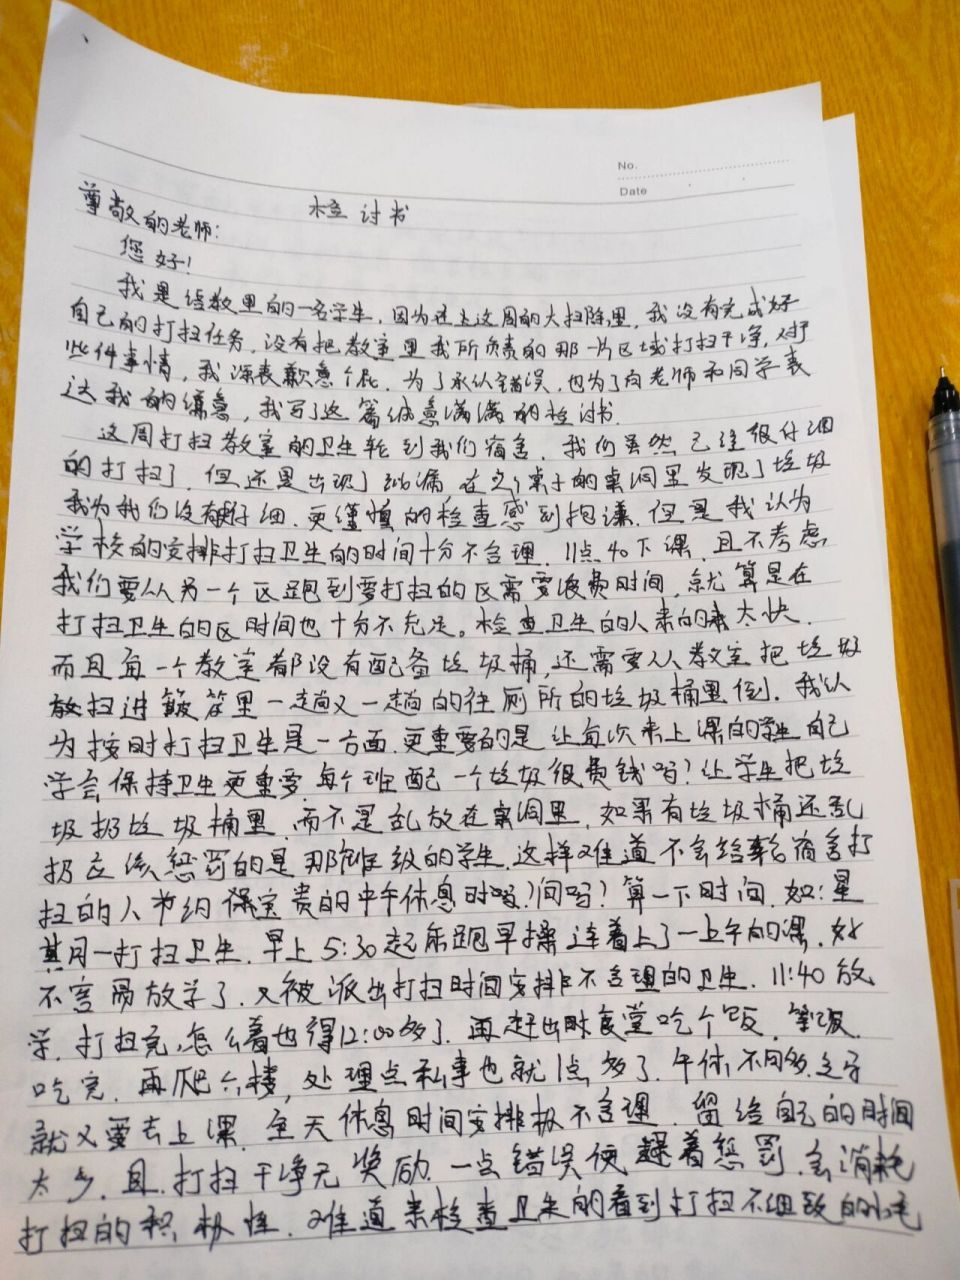 No.
Date
检讨书
尊敬的老师:
您好!
我是经数里的一名学生,因为在上这周的大扫除里,我没有完成好
自己的打扫任务,没有把教室里我所负责的那一片区域打扫干净,对于
这件事情,我深表歉意。为了承认错误,也为了向老师和同学表
达我的痛意,我写了这篇诚意满满的检讨书.
这周打扫教室的卫生轮到我们宿舍,我们虽然已经很仔细
的打扫了,但还是出现了纰漏在桌子的桌洞里发现了垃圾
我为我们没有仔细、更谨慎的检查感到抱谦.但是我认为
学校的安排打扫卫生的时间十分不合理,11点40下课,且不考虑
我们要从另一个区跑到要打扫的区需要浪费时间,就算是在
打扫卫生的区时间也十分不充足。检查卫生的人来的太快.
而且每一个教室都没有配备垃圾桶,还需要从教室把垃圾
扫进簸箕里一趟又一趟的往厕所的垃圾桶里倒.我认
为按时打扫卫生是一方面,更重要的是让每次来上课的学生自己
学会保持卫生更重要,每个班配一个垃圾很费钱吗?让学生把垃
圾扔垃圾桶里,而不是乱放在桌洞里,如果有垃圾桶还乱
扔应该惩罚的是那班级的学生,这样难道不会给轮宿舍打
扫的人节约保宝贵的中午休息时间吗?算一下时间,如:星
期一打扫卫生,早上5:30起床跑早操连着上了一上午的课,好
不容易放学了,又被派出打扫时间安排不合理的卫生,11:40放
学,打扫完,怎么着也得12:00多了,再赶出时食堂吃个饭,等饭
吃完,再爬六楼,处理点私事也就1点多了,午休,不间多之乎
就又要去上课,全天休息时间安排极不合理,留给自己的时间
太少,且打扫干净无奖励,一点错误便趕着惩罚,会消耗
打扫的积极性,难道来检查卫生的看到打扫不细致的小毛